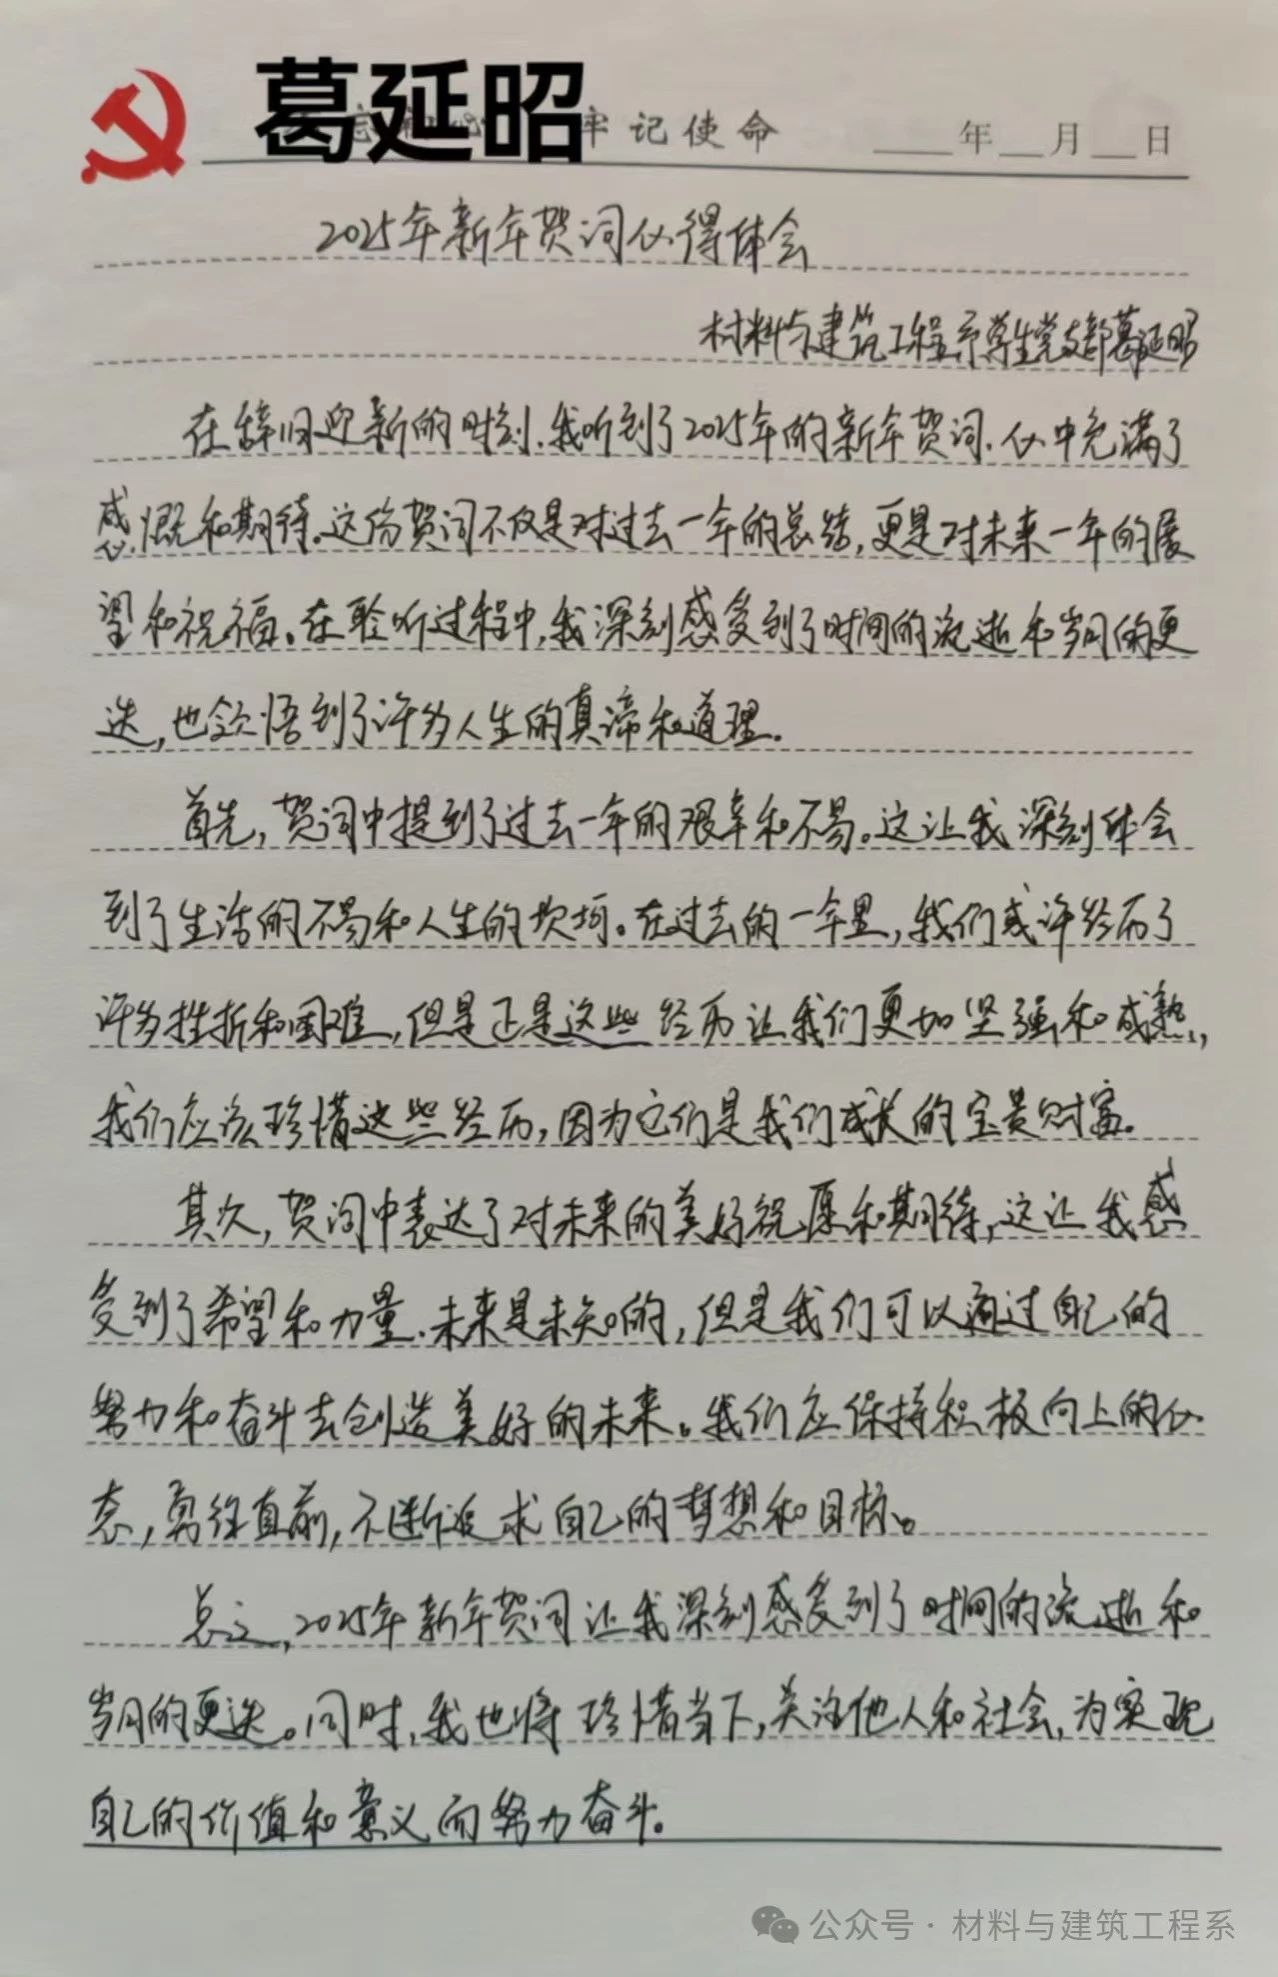 葛延昭
牢记使命
年 月 日
2025年新年贺词心得体会
材料与建筑工程系学生党支部葛延昭
在辞旧迎新的时刻,我听到了2025年的新年贺词.心中充满了
感慨和期待。这份贺词不仅是对过去一年的总结,更是对未来一年的展
望和祝福。在聆听过程中,我深刻感受到了时间的流逝和岁月的更
迭,也领悟到了许多人生的真谛和道理.
首先,贺词中提到了过去一年的艰辛和不易。这让我深刻体会
到了生活的不易和人生的坎坷。在过去的一年里,我们或许经历了
许多挫折和困难,但是正是这些经历让我们更加坚强和成熟,
我们应该珍惜这些经历,因为它们是我们成长的宝贵财富。
其次,贺词中表达了对未来的美好祝愿和期待,这让我感
受到了希望和力量.未来是未知的,但是我们可以通过自己的
努力和奋斗去创造美好的未来。我们应保持积极向上的心
态,勇往直前,不断追求自己的梦想和目标。
总之,2025年新年贺词让我深刻感受到了时间的流逝和
岁月的更迭。同时,我也将珍惜当下,关注他人和社会,为实现
自己的价值和意义而努力奋斗.
公众号·材料与建筑工程系